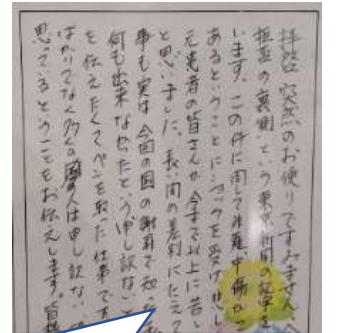 拝啓 突然のお便りですみません。
拒否の裏側という事で、新聞の記事
います。この件に関して非難中傷が
あるということにショックを受けました
元患者の皆さんが今まで以上に苦
と思いました。長い間の差別にたえて
事も実は今回の国の謝罪で知
何も出来なかったという申し訳ない
を伝えたくてペンを取った仕事です
ばかりでなく多くの国の人は申し訳ない
思っているということをお伝えします。皆